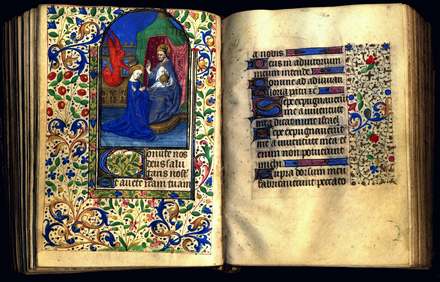 Conuerte nos
deus salu
taris noster
Et auerte iram tuam
a nobis
Deus in adiutorium
meum intende
Domine ad adiuuan
Gloria patri
Sepe expugnauerunt
me a iuuentute
mea dicat nunc israel
Sepe expugnauerunt
me a iuuentute mea
enim non potuerunt
michi
Supra dorsum meum
fabricauerunt peccato